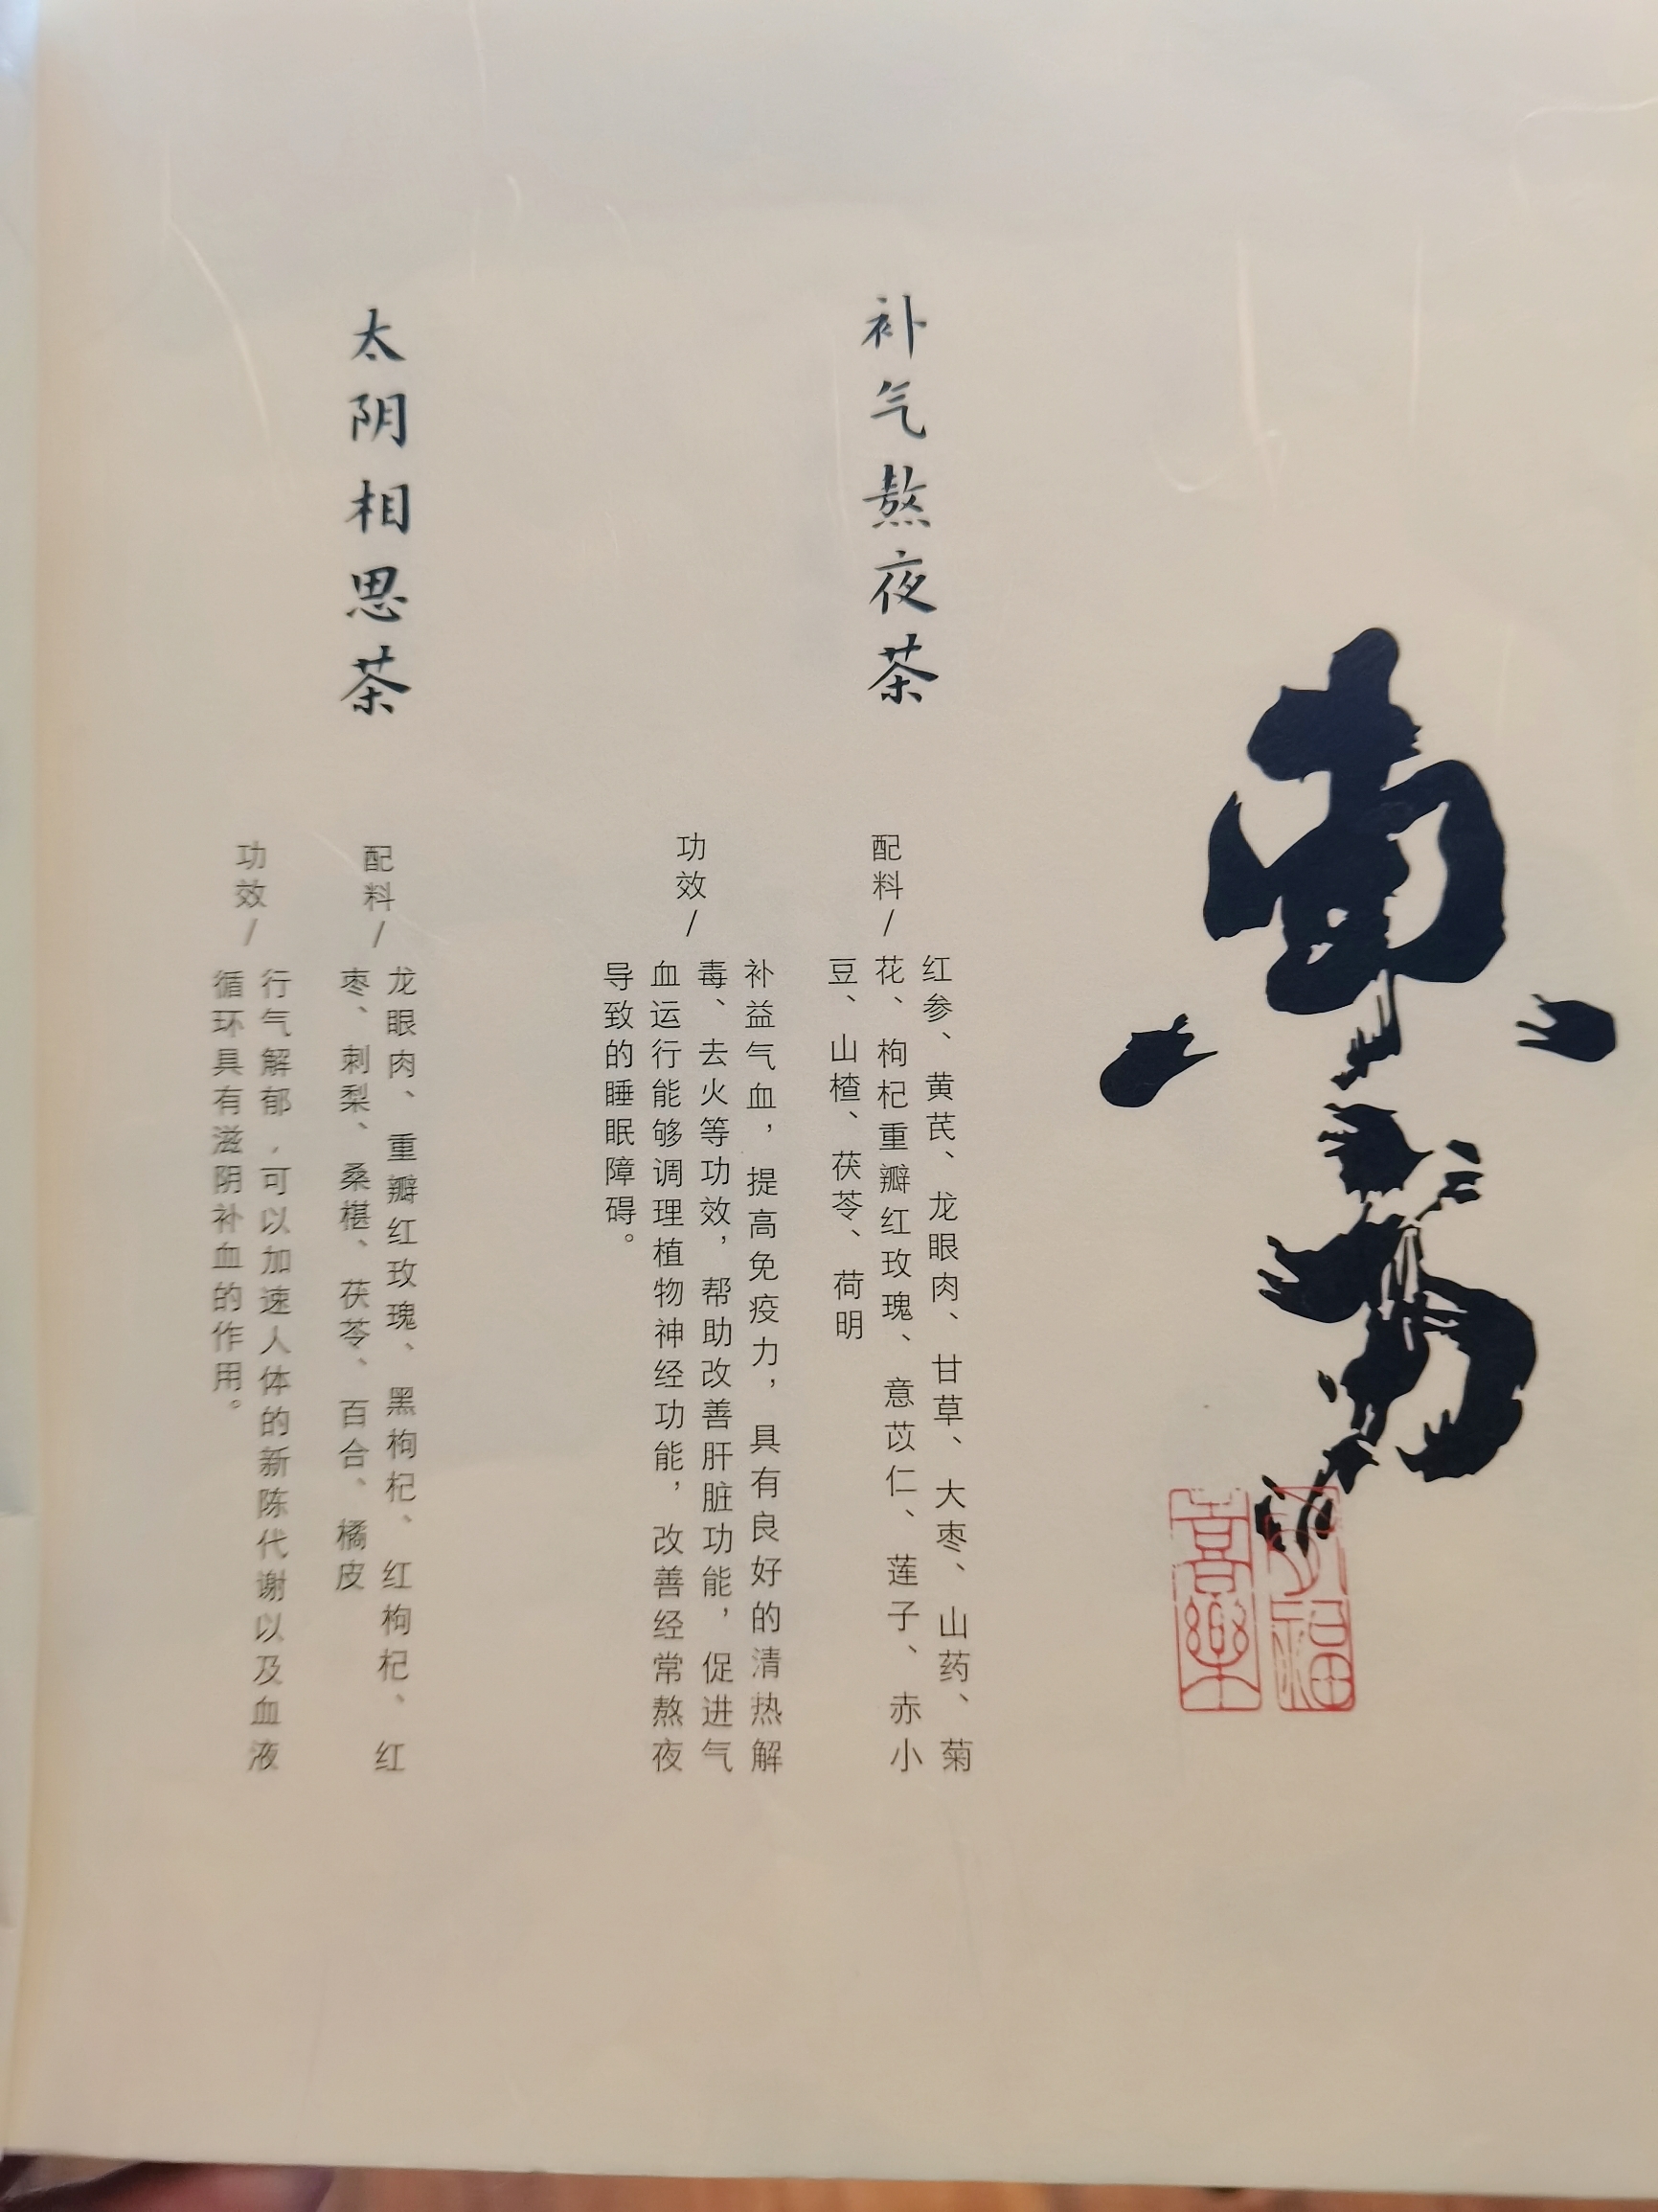 补气熬夜茶
配料/
红参、黄芪、龙眼肉、甘草、大枣、山药、菊
花、枸杞重瓣红玫瑰、意苡仁、莲子、赤小
豆、山楂、茯苓、荷明
功效/
补益气血，提高免疫力，具有良好的清热解
毒、去火等功效，帮助改善肝脏功能，促进气
血运行能够调理植物神经功能，改善经常熬夜
导致的睡眠障碍。
太阴相思茶
配料/
龙眼肉、重瓣红玫瑰、黑枸杞、红枸杞、红
枣、刺梨、桑椹、茯苓、百合、橘皮
功效/
行气解郁，可以加速人体的新陈代谢以及血液
循环具有滋阴补血的作用。